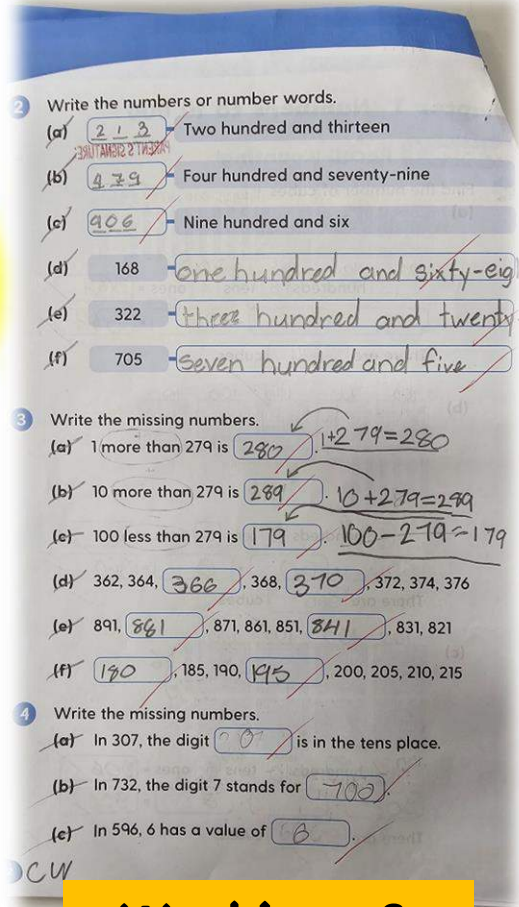 2 Write the numbers or number words.
(a) 213 Two hundred and thirteen
PARENT'S SIGNATURE:
(b) 479 Four hundred and seventy-nine
(c) 906 Nine hundred and six
(d) 168 one hundred and sixty-eig
(e) 322 three hundred and twenty
(f) 705 seven hundred and five
3 Write the missing numbers.
(a) 1 more than 279 is 280. 1+279=280
(b) 10 more than 279 is 289. 10+279=289
(c) 100 less than 279 is 179. 100-279=179
(d) 362, 364, 366, 368, 370, 372, 374, 376
(e) 891, 881, 871, 861, 851, 841, 831, 821
(f) 180, 185, 190, 195, 200, 205, 210, 215
4 Write the missing numbers.
(a) In 307, the digit 0 is in the tens place.
(b) In 732, the digit 7 stands for 700.
(c) In 596, 6 has a value of 6.
CW